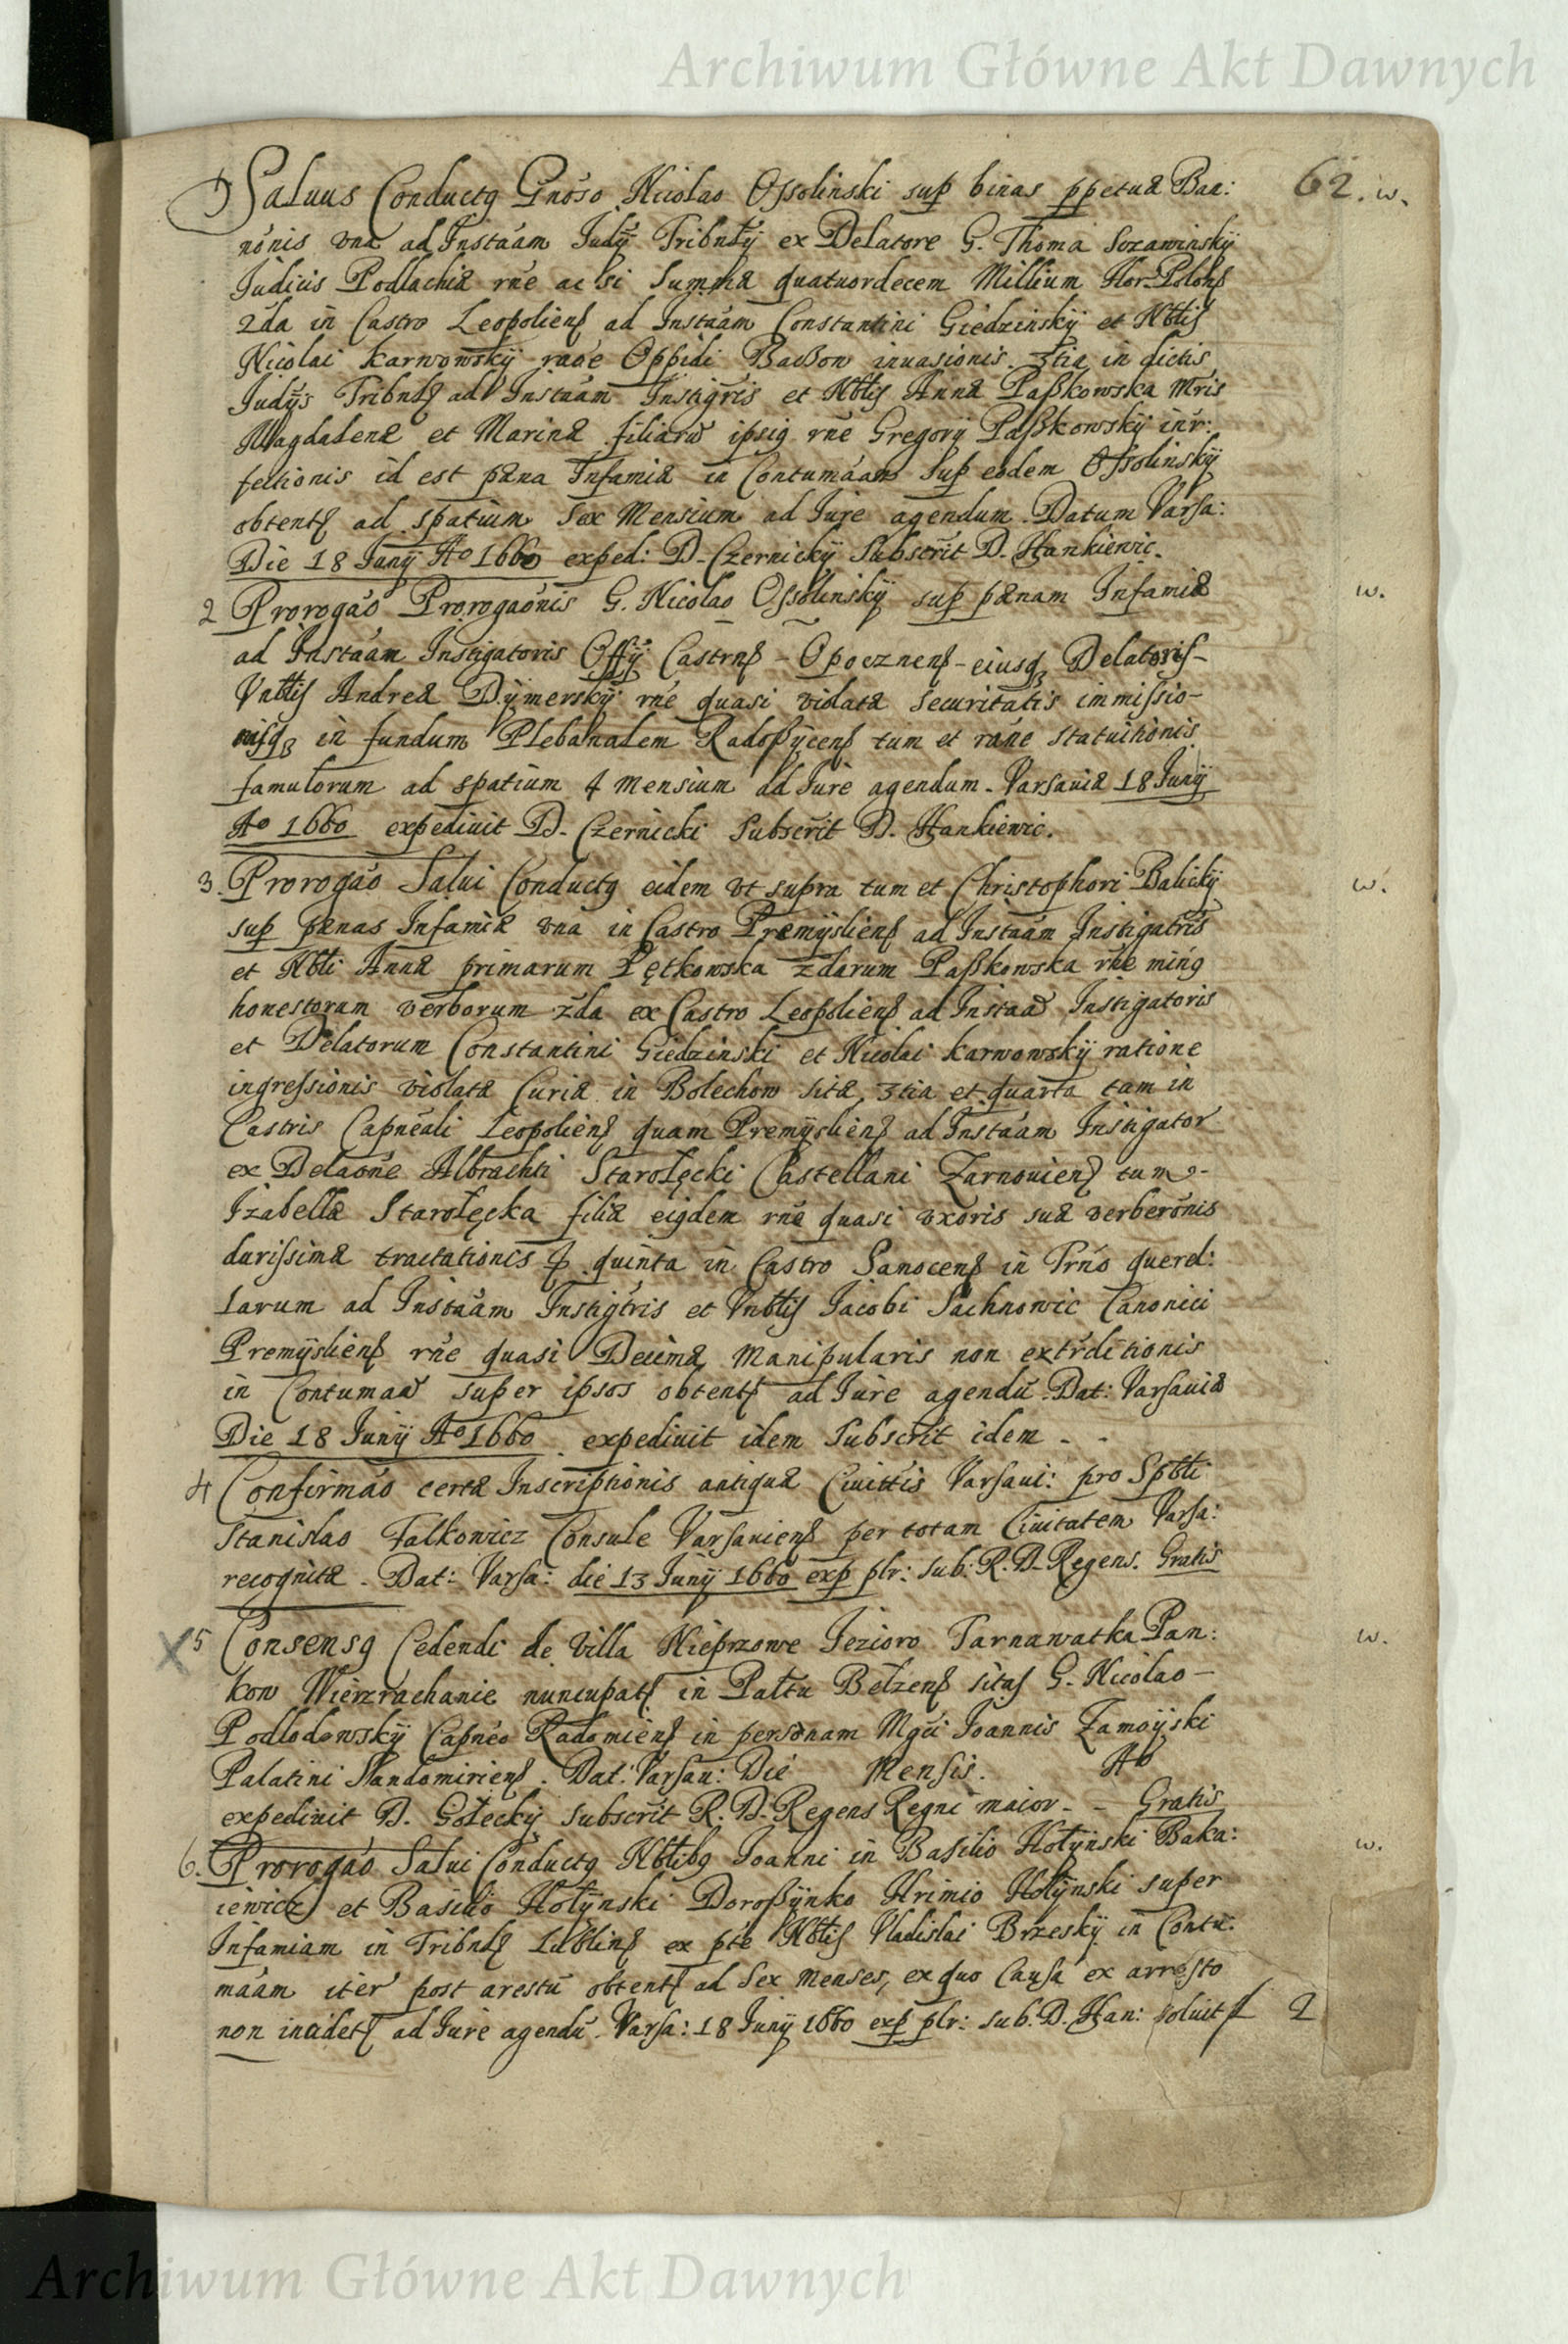 Archiwum Główne Akt Dawnych
62. w.
1 Saluus Conductq Gnoso Nicolao Ossolinski sup binas ppetuæ Ban:
nonis vna ad Instaam Judÿ Tribnlÿ ex Delatore G. Thoma Sozawinskÿ
Judicis Podlachiæ rne ac si Summæ quatuordecem Millium Flor Polon
2da in Castro Leopoliens ad Instaam Constantini Giedzinskÿ et Nblis
Nicolai Karwowskÿ raoe Oppidi invasionis. 3tia in dictis
Judÿs Tribnls ad Instaam Instigris et Nblis Annæ Paßkowska Mris
Magdalenæ et Marinæ filiaru ipsiq rne Gregorÿ Paßkowskÿ intr:
fectionis id est pæna Infamiæ in Contumaam sup eodem Ossolinskÿ
obtent ad spatium sex Mensium ad Jure agendum. Datum Varsa:
Die 18 Junÿ Ao 1660 exped: D. Czernickÿ Subscrit D. Hankiewic.
2 Prorogao Prorogaonis G. Nicolao Ossolinskÿ sup pænam Infamiæ w.
ad Instaam Instigatoris Offÿ Castrns - Opocznens - eiusq Delatoris -
Vnblis Andreæ Dÿmerskÿ rne quasi violatæ securitatis immissio-
nisq in fundum Plebanalem Radoßÿcens tum et rane statuitionis
famulorum ad spatium 4 mensium ad Jure agendum. Varsaviæ 18 Junÿ
Ao 1660 expediuit D. Czernicki Subscrit D. Hankiewic.
3. Prorogao Salui Conductq eidem vt supra tum et Christophori Balickÿ w.
sup pænas Infamiæ vna in Castro Premÿsliens ad Instaam Instigatris
et Nbli Annæ primarum Pętkowska 2darum Paßkowska rne minq
honestorum verborum 2da ex Castro Leopoliens ad Instaa Instigatoris
et Delatorum Constantini Giedzinski et Nicolai Karwowskÿ ratione
ingressionis violatæ Curiæ in Bolechow sitæ, 3tia et quarta tam in
Castris Capneali Leopoliens quam Premÿsliens ad Instaam Instigator
ex Delaone Albrachti Starołęcki Castellani Zarnoviens tum -
Izabellæ Starołęcka filiæ eiqdem rne quasi vxoris suæ verberonis
durissimæ tractationis quinta in Castro Sanocens in Trno querel:
larum ad Instaam Instigtris et Vnblis Jacobi Sachnowic Canonici
Premÿsliens rne quasi Decimæ Manipularis non extrditionis
in Contumaa super ipsos obtent ad Jure agendu. Dat: Varsaviæ
Die 18 Junÿ Ao 1660. expediuit idem Subscrit idem - -
4 Confirmao certæ Inscriptionis antiquæ Ciuittis Varsaui: pro Spbli
Stanislao Falkowicz Consule Varsauiens per totam Ciuitatem Varsa:
recognitæ. Dat: Varsa: die 13 Junÿ 1660 exp plr: sub. R. D. Regens. Gratis
X 5 Consensq Cedendi de Villa Nieprzowe Jezioro Tarnawatka Pan: w.
kow Wierzrachanie nuncupat in Paltu Belzens sitas G. Nicolao -
Podlodowskÿ Capneo Radomiens in personam Mgci Joannis Zamoÿski
Palatini Sandomiriens. Dat: Varsau: Die Mensis. Ao
expediuit D. Gołeckÿ subscrit R. D. Regens Regni maior - - Gratis
6. Prorogao Salui Conductq Nblibq Joanni in Basilio Hołÿnski Baka: w.
iewicz et Basilio Hołÿnski Doroßÿnko Hrimio Hołÿnski super
Infamiam in Tribnls Lublins ex pte Nblis Vladislai Brzeskÿ in Contu:
maam iter post arestu obtent ad sex menses, ex quo Causa ex arresto
non incidet ad Jure agendu. Varsa: 18 Junÿ 1660 exp plr: sub. D. Han: soluit f 2
Archiwum Główne Akt Dawnych